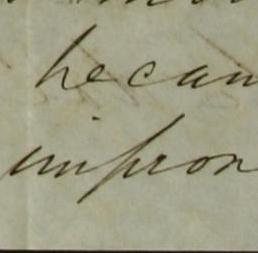 he can
impron